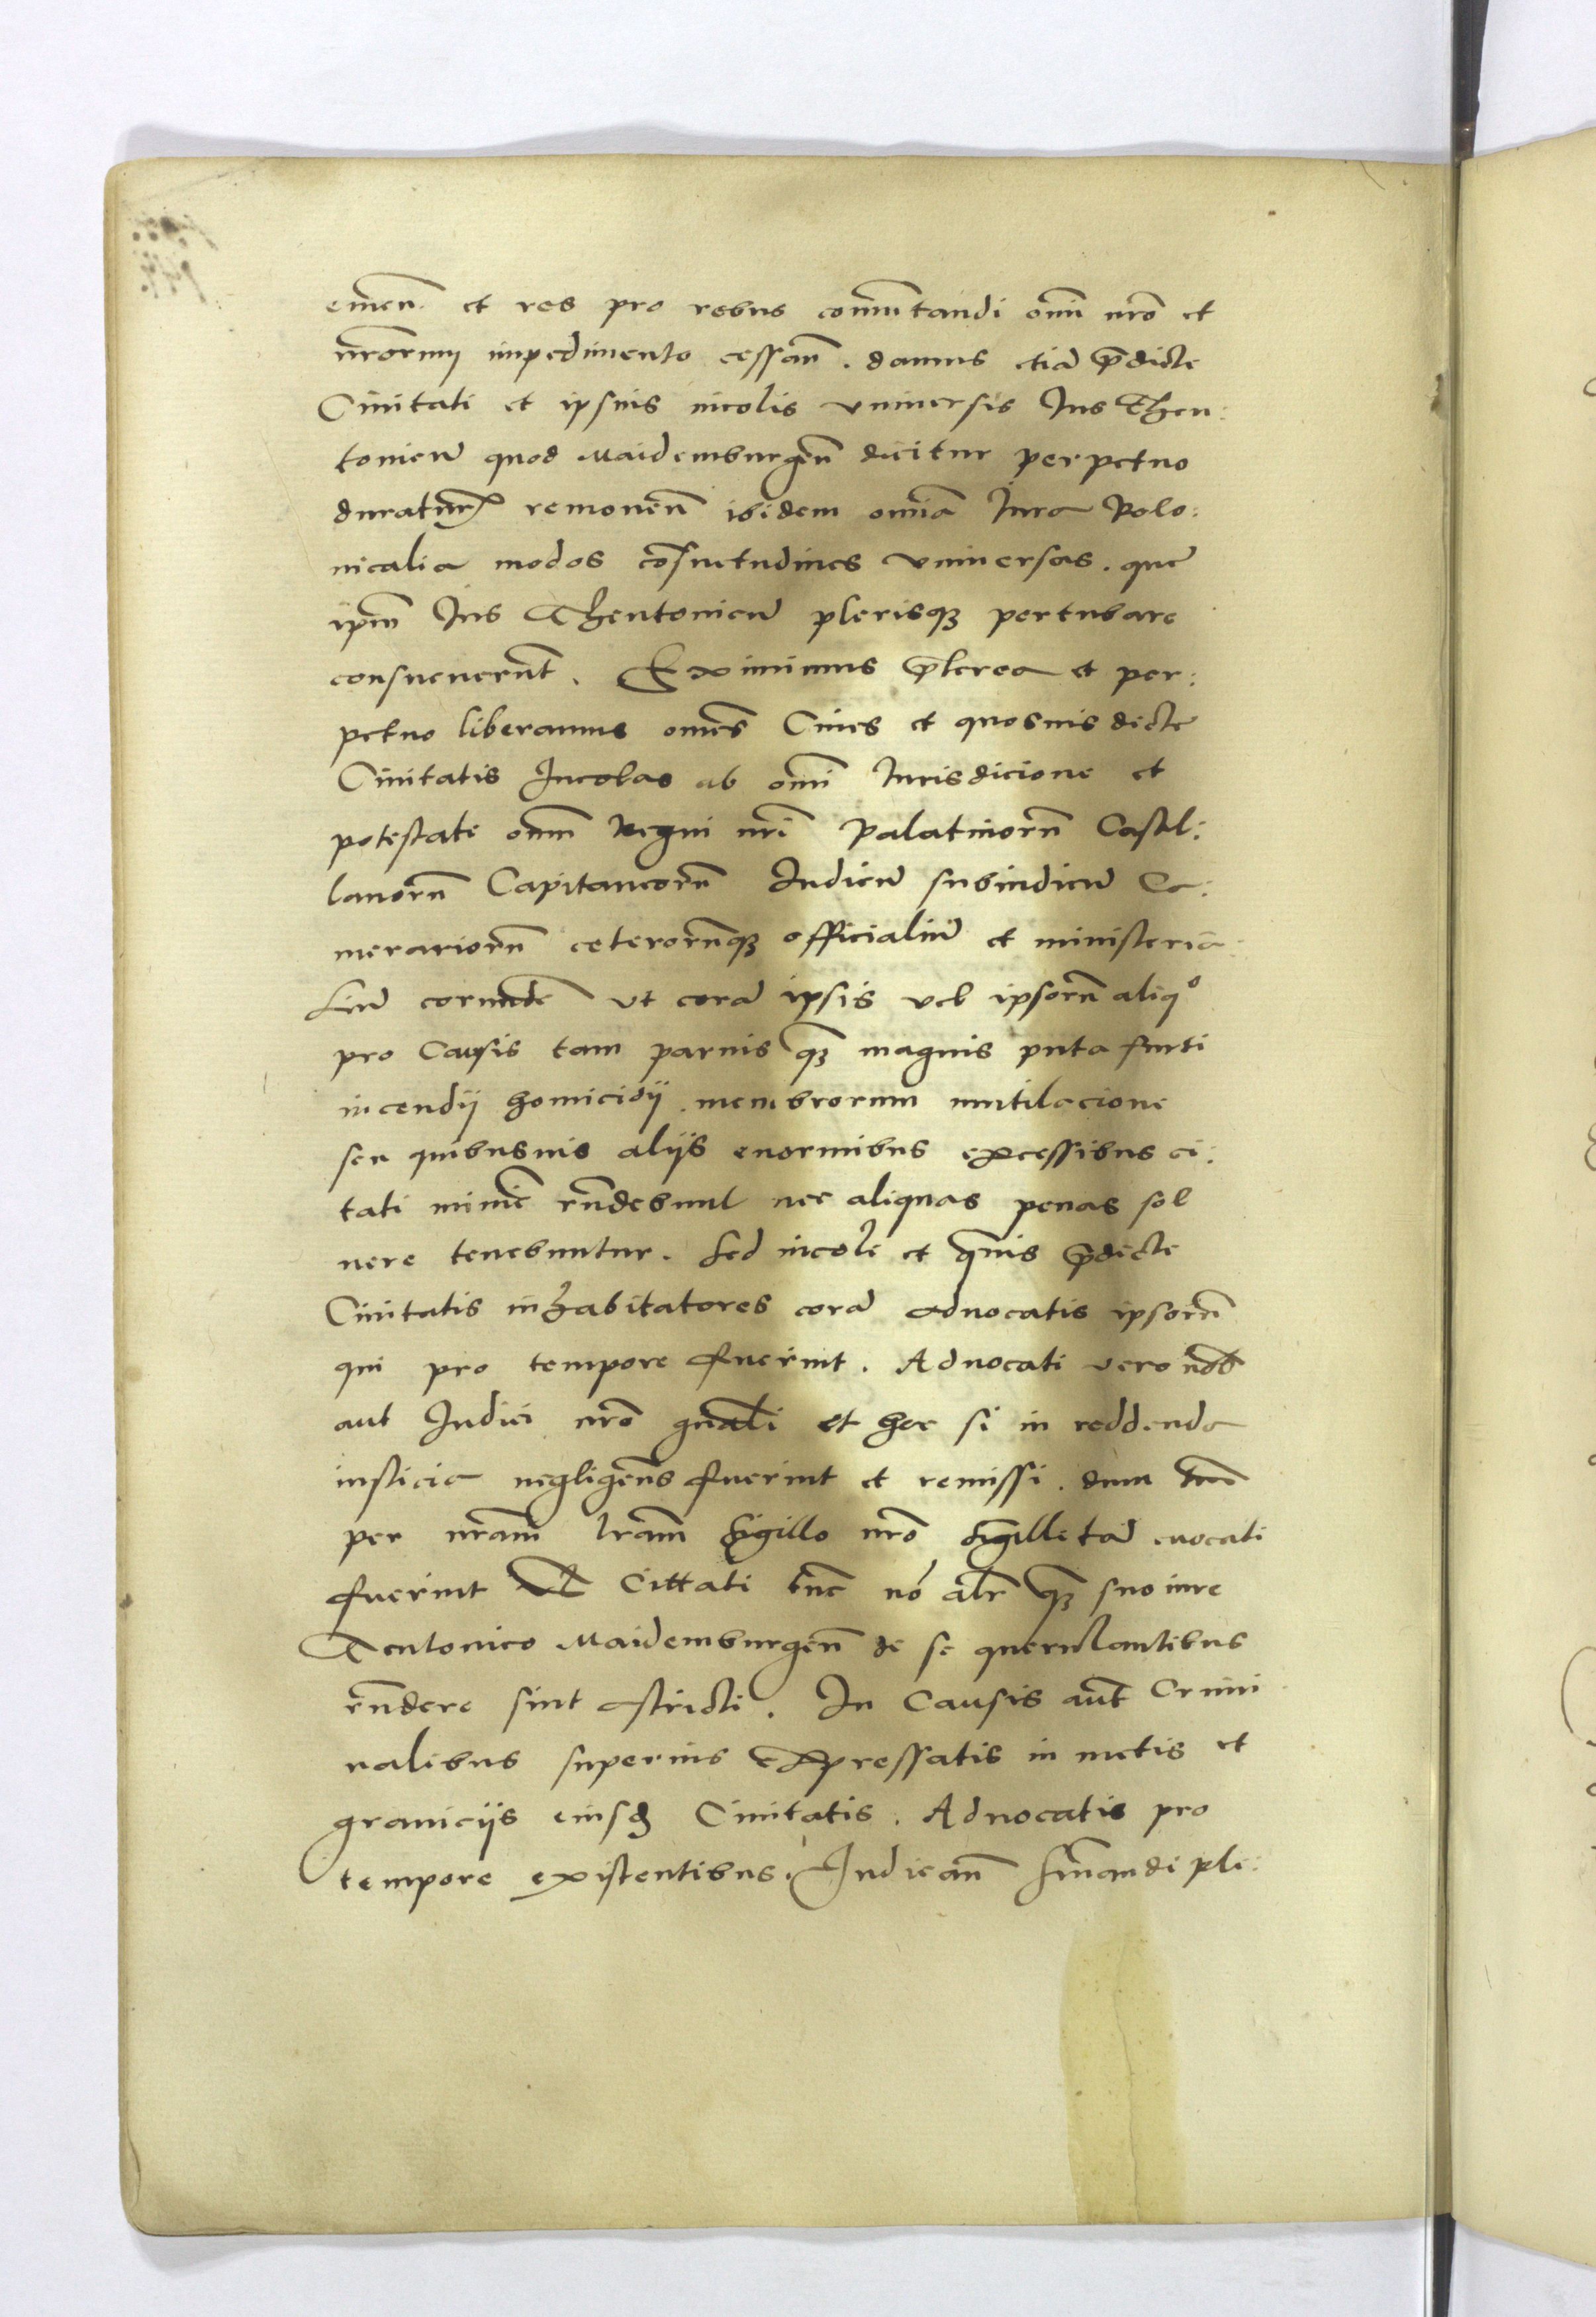 emen̄ et res pro rebus com̄utandi om̄i nr̄o et
nr̄orum impedimento cessan̄. damus etiā p̄dicte
Ciuitati et ipsius incolis vniuersis Ius Theu:
tonicū quod Maidemburgen̄ dicitur perpetuo
duraturū remouen̄ ibidem om̄ia Iura Polo:
nicalia modos cōsuetudines vniuersas. que
ip̄m Ius Theutonicū plerisqꝫ pertubare
consueuerūt. Eximimus p̄terea et per:
petuo liberamus om̄es Ciues et quosuis dicte
Ciuitatis Incolas ab om̄i Iurisdicione et
potestate om̄m Regni nr̄i Palatinorū Castel:
lanorū Capitaneorū Iudicū subiudicū Ca:
merariorū ceterorūqꝫ officialiū et ministeria:
liū eorundē ut corā ipsis vel ipsorū aliqᵒ
pro Causis tam paruis qꝫ magnis puta furti
incendij homicidij. membrorum mutilacione
seu quibusuis alijs enormibus excessibus ci:
tati minie r̄ndebunt nec aliquas penas sol
uere tenebuntur. Sed incole et q̄uis p̄dicte
Ciuitatis inhabitatores corā aduocatis ipsorū
qui pro tempore fuerint. Aduocati vero nob̄
aut Iudici nr̄o gn̄ali et hoc si in reddenda
iusticia negligen̄s fuerint et remissi. dum tn̄
per nr̄am lr̄am sigillo nr̄o sigillatā euocati
fuerint Et Cittati tūc nō alr̄ qꝫ suo iure
Teutonico Maidemburgen̄ de se querulantibus
r̄ndere sint astricti. In Causis aūt Crimi
nalibus superius expressatis in metis et
granicijs eiusd̄ Ciuitatis. Aduocatis pro
tempore existentibus. Iudican̄ sn̄iandi ple: